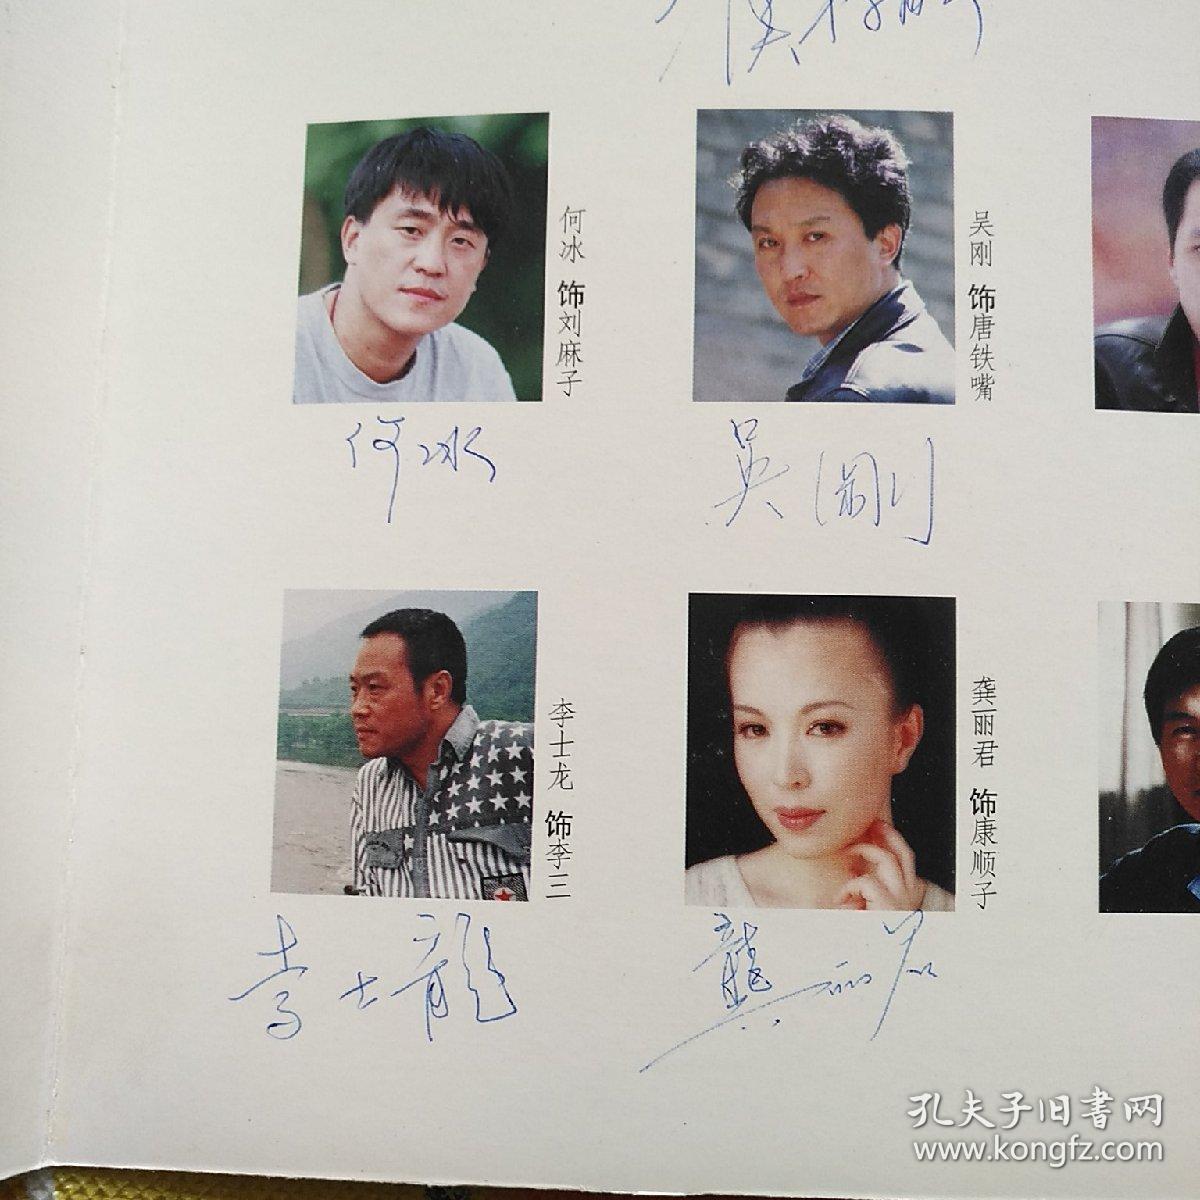 何冰 饰刘麻子
吴刚 饰唐铁嘴
何冰
吴刚
李士龙 饰李三
龚丽君 饰康顺子
李士龍
龔丽君
孔夫子旧書网
www.kongfz.com